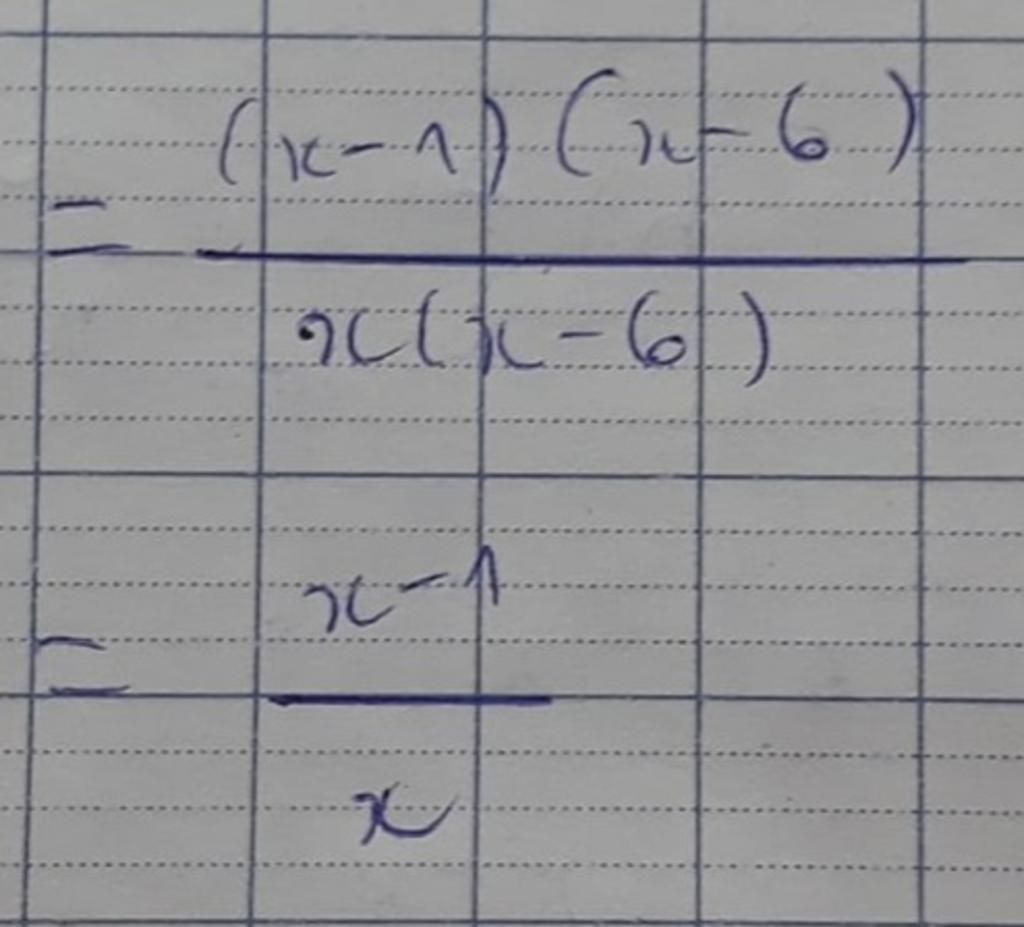 = (x-1)(x-6)
x(x-6)
= x-1
x